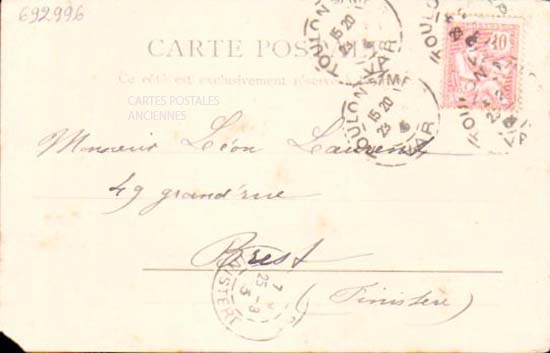 692996
CARTE POSTALE
Ce côté est exclusivement réservé
CARTES POSTALES
ANCIENNES
TOULON VAR
15 20
23
TOULON VAR
15 20
23
TOULON
10
Monsieur Léon Laurent
49 grand'rue
Brest
(Finistère)
FINISTERE
25